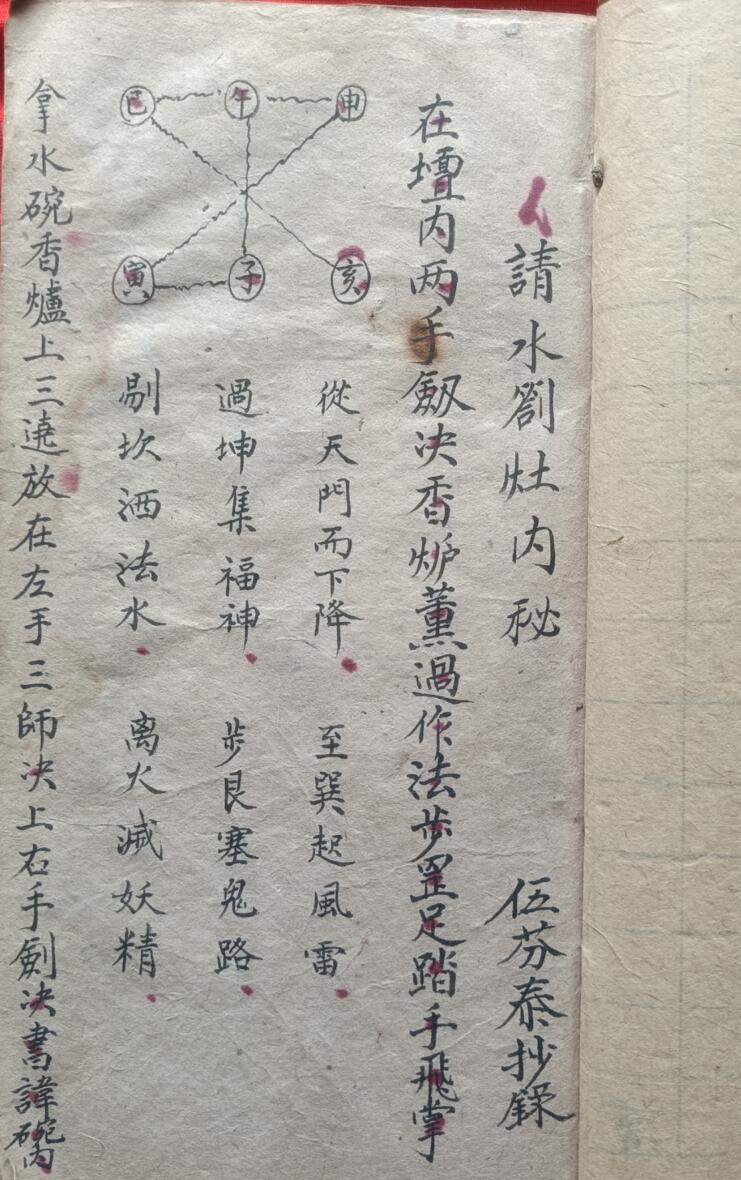 請水劄灶内秘 伍芬泰抄錄
在壇内两手劔决香炉薰過作法步罡足踏手飛掌
申 午 巳
亥 子 寅
從天門而下降 至巽起風雷
過坤集福神 步艮塞鬼路
剔坎洒法水 离火滅妖精
拿水碗香爐上三遶放在左手三師决上右手劍决書諱碗内